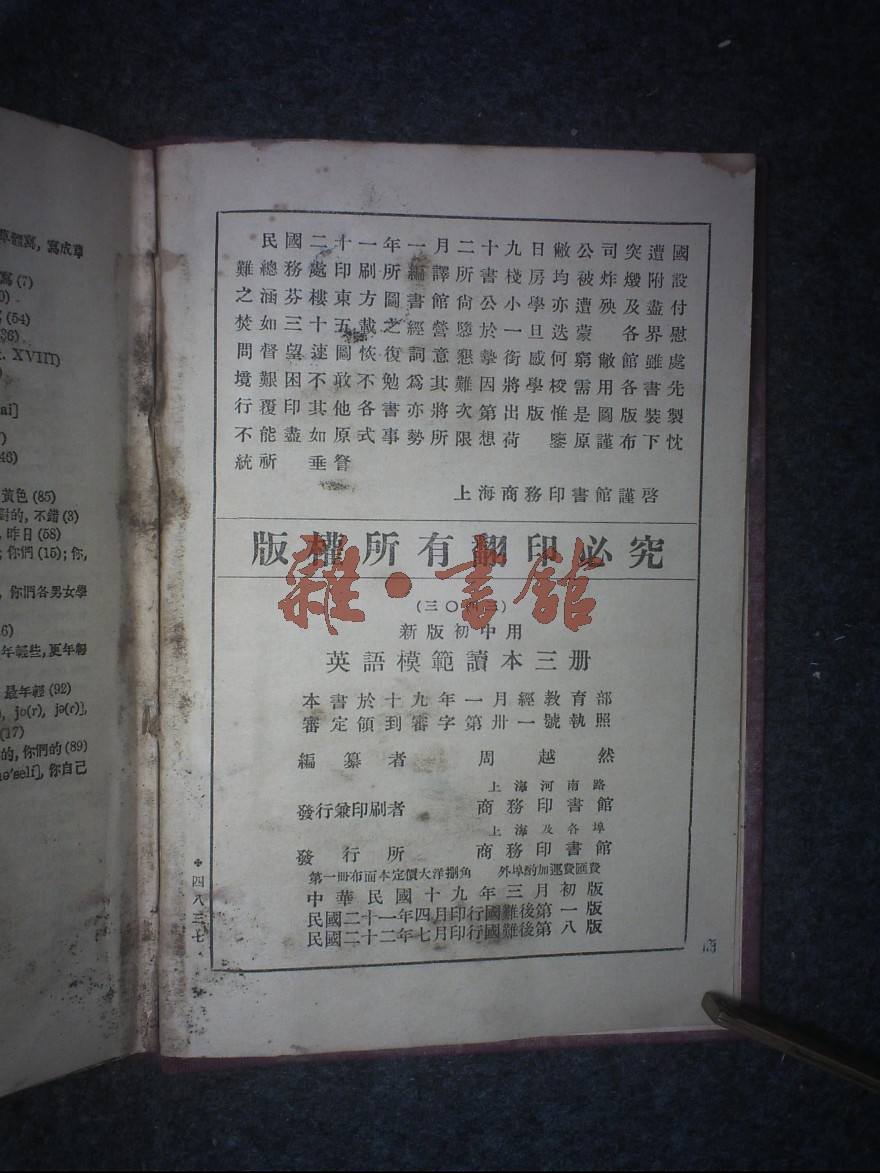 草體寫, 寫成草
寫 (7)
(54)
XVIII)
ai]
46)
黃色 (85)
對的, 不錯 (3)
昨日 (58)
你們 (15); 你,
你們各男女學
年輕些, 更年輕
最年輕 (92)
jo(r), jə(r)],
(17)
的, 你們的 (89)
self], 你自己
民國二十一年一月二十九日敝公司突遭國
難總務處印刷所編譯所書棧房均被炸燬附設
之涵芬樓東方圖書館尚公小學亦遭殃及盡付
焚如三十五載之經營隳於一旦迭蒙 各界慰
問督望速圖恢復詞意懇摯銜感何窮敝館雖處
境艱困不敢不勉爲其難因將學校需用各書先
行覆印其他各書亦將次第出版惟是圖版裝製
不能盡如原式事勢所限想荷 鑒原謹布下忱
統祈 垂詧
上海商務印書館謹啓
版權所有翻印必究
雜·書館
(三〇四三)
新版初中用
英語模範讀本三册
本書於十九年一月經教育部
審定領到審字第卅一號執照
編纂者 周越然
上海河南路
發行兼印刷者 商務印書館
上海及各埠
發行所 商務印書館
第一冊布面本定價大洋捌角 外埠酌加運費匯費
中華民國十九年三月初版
民國二十一年四月印行國難後第一版
民國二十二年七月印行國難後第八版
四八三七